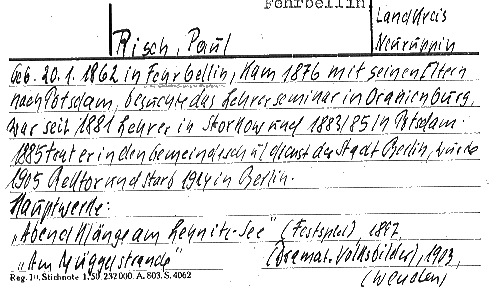 Fehrbellin
Landkreis
Risch, Paul
Neuruppin
Geb. 20. 1. 1862 in Fehrbellin, kam 1876 mit seinen Eltern
nach Potsdam, besuchte das Lehrerseminar in Oranienburg,
war seit 1881 Lehrer in Storkow und 1883/85 in Potsdam.
1885 trat er in den Gemeindeschuldienst der Stadt Berlin, wurde
1905 Rektor und starb 1924 in Berlin.
Hauptwerke:
"Abendklänge am Lehnitz-See" (Festspiel), 1897,
"Am Müggelstrande" (Dramat. Volksbilder), 1903,
Reg. 10. Stichnote 1. 50 232000. A. 803. S. 4062
(Wenden)